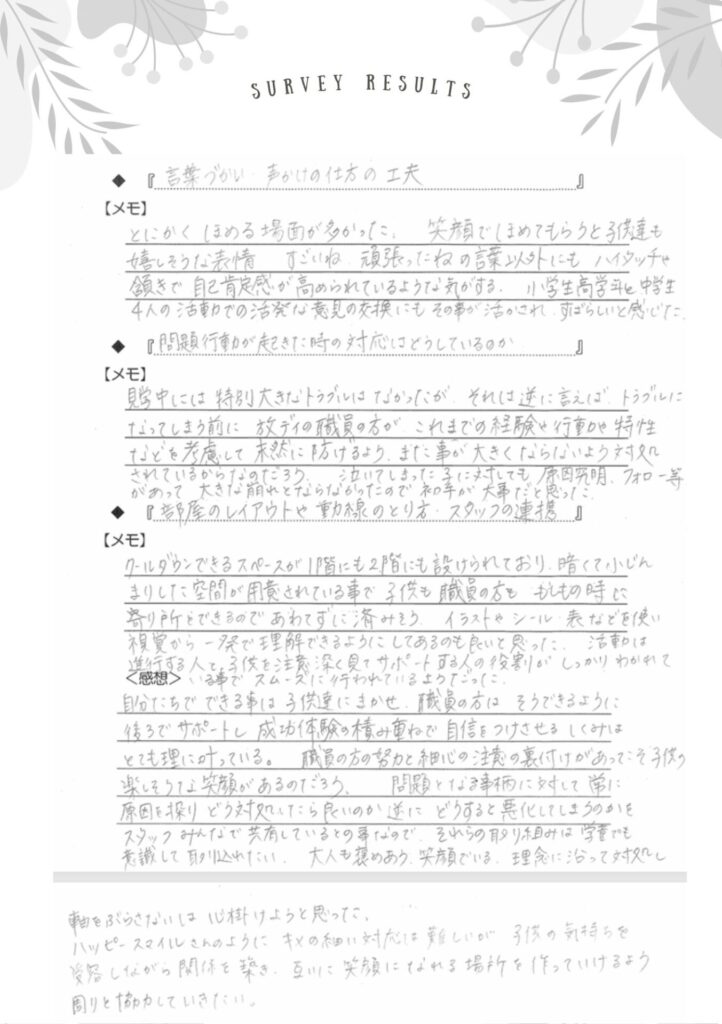 SURVEY RESULTS
◆ 『言葉づかい・声かけの仕方の工夫』
【メモ】
とにかくほめる場面が多かった。笑顔でほめてもらうと子供達も
嬉しそうな表情 すごいね、頑張ったねの言葉以外にもハイタッチや
頷きで自己肯定感が高められているような気がする。小学生高学年と中学生
4人の活動での活発な意見の交換にもその事が活かされ、すばらしいと感じた。
◆ 『問題行動が起きた時の対応はどうしているのか』
【メモ】
見学中には特別大きなトラブルはなかったが、それは逆に言えば、トラブルに
なってしまう前に放デイの職員の方が、これまでの経験や行動や特性
などを考慮して未然に防げるよう、また事が大きくならないよう対処
されているからなのだろう。泣いてしまった子に対しても、原因究明、フォロー等
があって大きな崩れとならなかったので初手が大事だと思った。
◆ 『部屋のレイアウトや動線のとり方・スタッフの連携』
【メモ】
クールダウンできるスペースが1階にも2階にも設けられており、暗くて小じん
まりした空間が用意されている事で子供も職員の方ももしもの時に
寄り所をできるのであわてずに済みそう。イラストやシール・表などを使い
視覚から一発で理解できるようにしてあるのも良いと思った。活動は
進行する人と、子供を注意深く見てサポートする人の役割がしっかりわかれて
＜感想＞ いる事でスムーズに行われているようだった。
自分たちでできる事は子供達にまかせ、職員の方はそうできるように
後ろでサポートし成功体験の積み重ねで自信をつけさせるしくみは
とても理に叶っている。職員の方の努力と細心の注意の裏付けがあってこそ子供の
楽しそうな笑顔があるのだろう。問題となる事柄に対して常に
原因を探りどう対処したら良いのか逆にどうすると悪化してしまうのかを
スタッフみんなで共有しているとの事なので、それらの取り組みは学童でも
意識して取り込れたい。大人も褒めあう、笑顔でいる、理念に沿って対処し
軸をぶらさないは心掛けようと思った。
ハッピースマイルさんのようにキメの細い対応は難しいが子供の気持ちを
受容しながら関係を築き、互いに笑顔になれる場所を作っていけるよう
周りと協力していきたい。